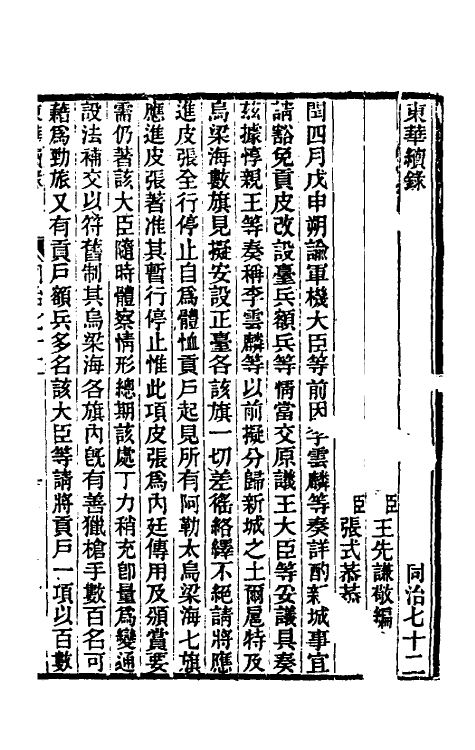 東華續錄 同治七十二
臣王先謙敬編
臣張式恭恭
閏四月戊申朔諭軍機大臣等前因李雲麟等奏詳酌新城事宜
請豁免貢皮改設臺兵額兵等情當交原議王大臣等妥議具奏
茲據惇親王等奏稱李雲麟等以前擬分歸新城之土爾扈特及
烏梁海數旗見擬安設正臺各該旗一切差徭絡繹不絕請將應
進皮張全行停止自為體恤貢戶起見所有阿勒太烏梁海七旗
應進皮張著准其暫行停止惟此項皮張為內廷傳用及頒賞要
需仍著該大臣隨時體察情形總期該處丁力稍充卽量為變通
設法補交以符舊制其烏梁海各旗內旣有善獵槍手數百名可
藉為勁旅又有貢戶額兵多名該大臣等請將貢戶一項以百數
東華續錄 同治七十二